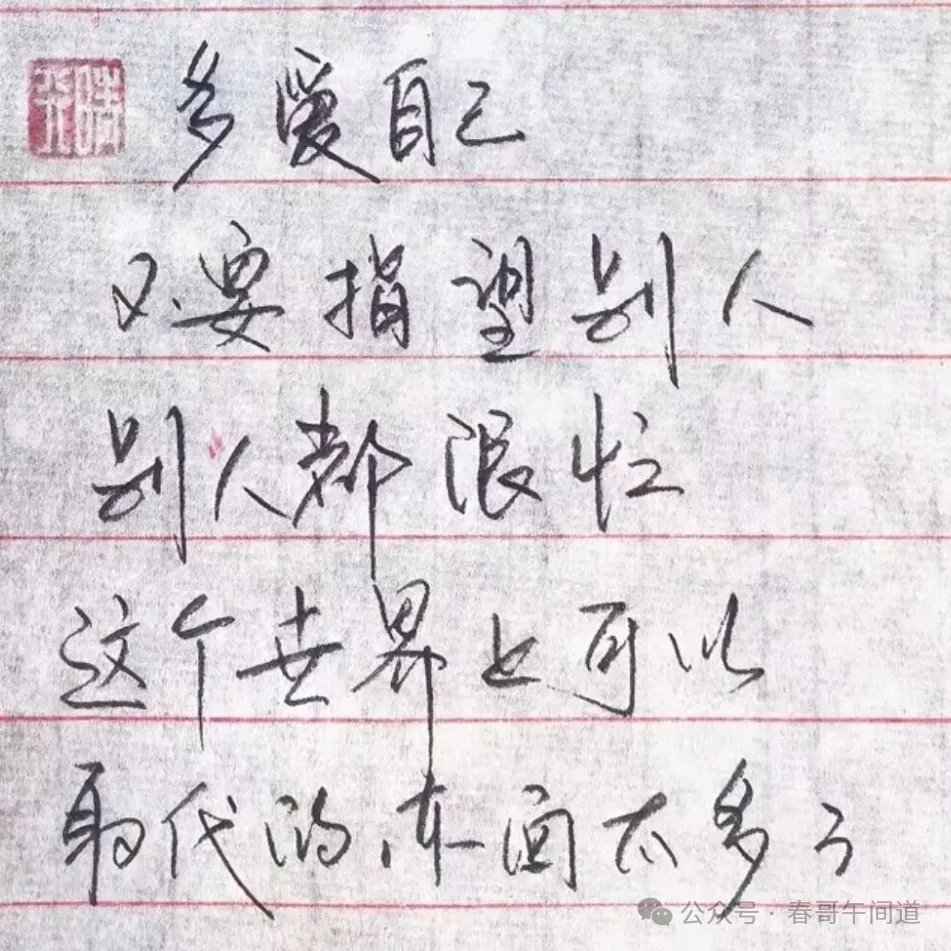 多爱自己
不要指望别人
别人都很忙
这个世界上可以
取代的东西太多了
公众号·春哥午间道